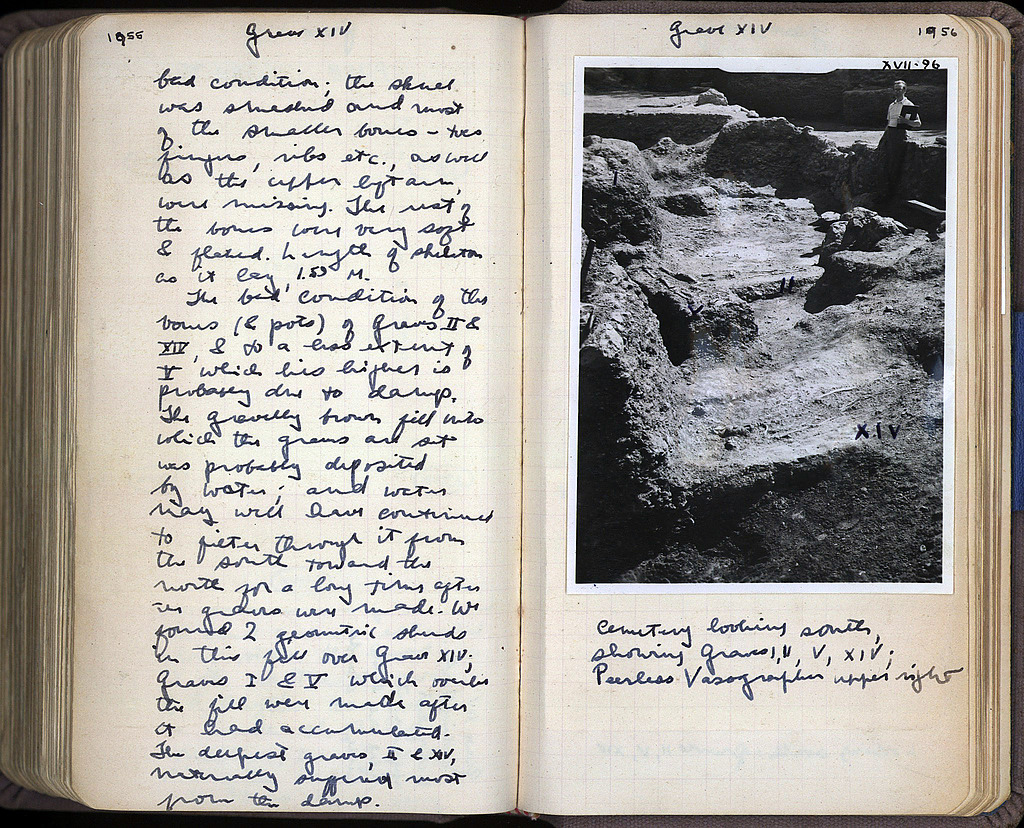 1955
Grave XIV
bad condition; the skull
was smashed and most
of the smaller bones – toes
fingers, ribs etc., as well
as the upper left arm,
were missing. The rest of
the bones were very soft
& flaked. Length of skeleton
as it lay, 1.53 M.
The bad condition of the
bones (& pots) of Graves II &
XIV, & to a less extent of
V which lies higher is
probably due to damp.
The gravelly brown fill into
which the graves are set
was probably deposited
by water; and water
may well have continued
to filter through it from
the south toward the
north for a long time after
the graves were made. We
found 2 geometric sherds
in this fill over Grave XIV;
Graves I & V which overlie
the fill were made after
it had accumulated.
The deepest graves, II & XIV,
naturally suffered most
from the damp.
Grave XIV
1956
XVII-96
I
II
V
XIV
Cemetery looking south,
showing Graves I, II, V, XIV;
Peerless Vasographer upper right